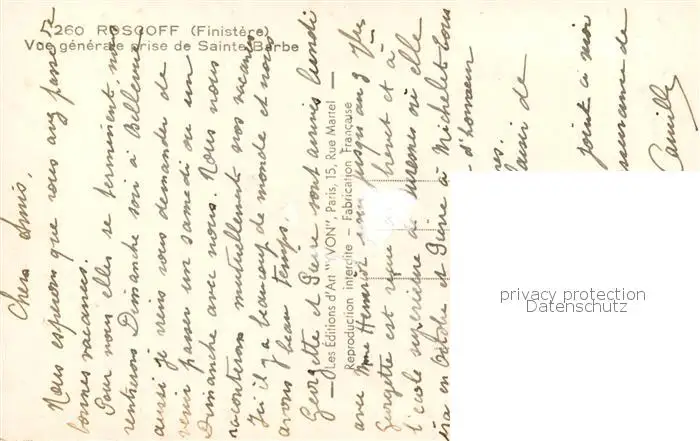 5260 ROSCOFF (Finistère)
Vue générale prise de Sainte-Barbe
Chers Amis,
Nous espérons que vous avez passé de
bonnes vacances.
Pour nous elles se terminent, nous
rentrerons Dimanche soir à Bellevue
aussi je viens vous demander de
venir passer un samedi ou un
Dimanche avec nous. Nous nous
raconterons mutuellement nos vacances
Ici il y a beaucoup de monde et nous
avons beau temps.
Georgette et Pierre sont arrivés lundi
avec Mme Henriot jusqu'au 3
Georgette est reçue et à
l'école supérieure de où elle
ira en Octobre et Pierre à Michelet tous
d'honneur
de
joint à moi
de
Camille
Les Éditions d'Art "YVON", Paris, 15, Rue Martel
Reproduction interdite — Fabrication Française
privacy protection
Datenschutz